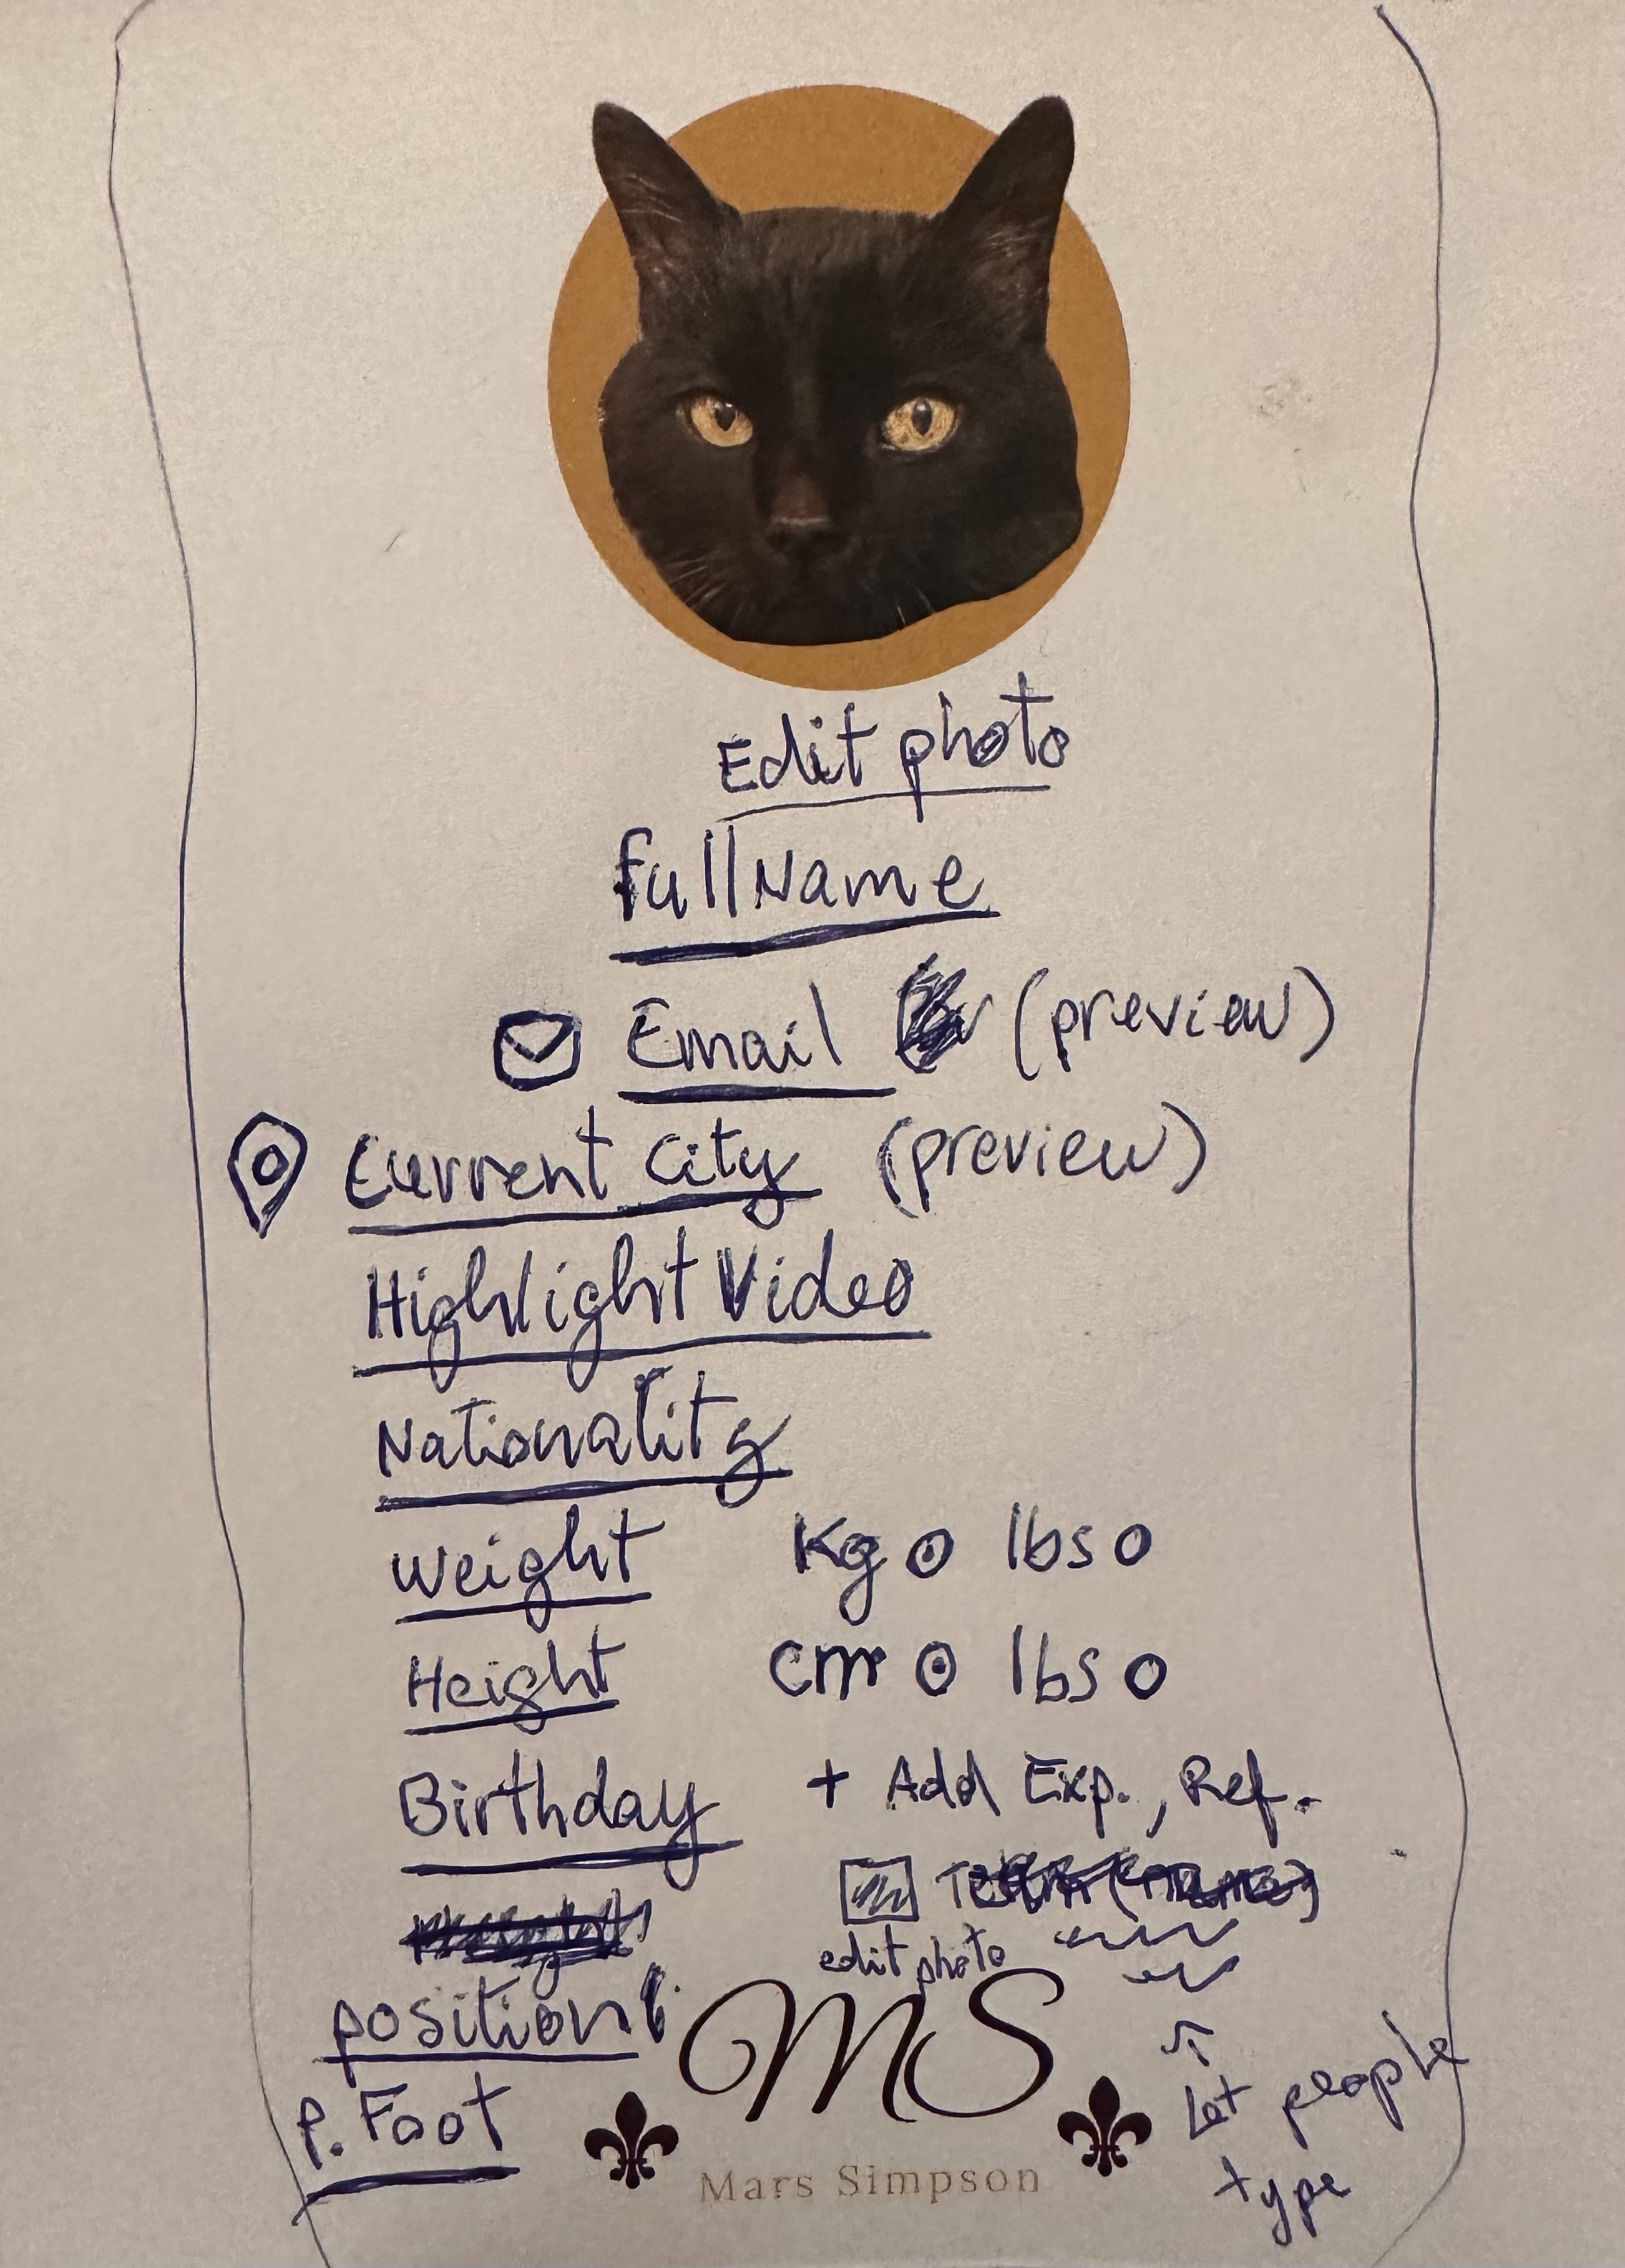 Edit photo
Full Name
Email (preview)
Current City (preview)
Highlight Video
Nationality
Weight Kg lbs
Height cm lbs
Birthday + Add Exp., Ref.
edit photo
position
P. Foot
Let people
type
MS
Mars Simpson